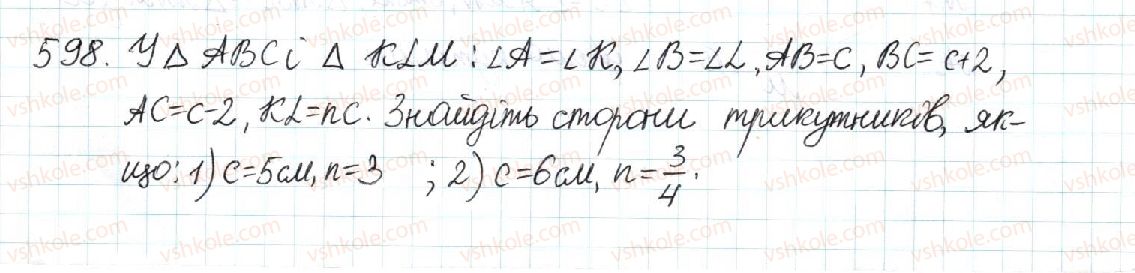 598. У △ ABC і △ KLM: ∠A=∠K, ∠B=∠L, AB=c, BC=c+2,
AC=c-2, KL=nc. Знайдіть сторони трикутників, як-
що: 1) c=5см, n=3 ; 2) c=6см, n=3/4.